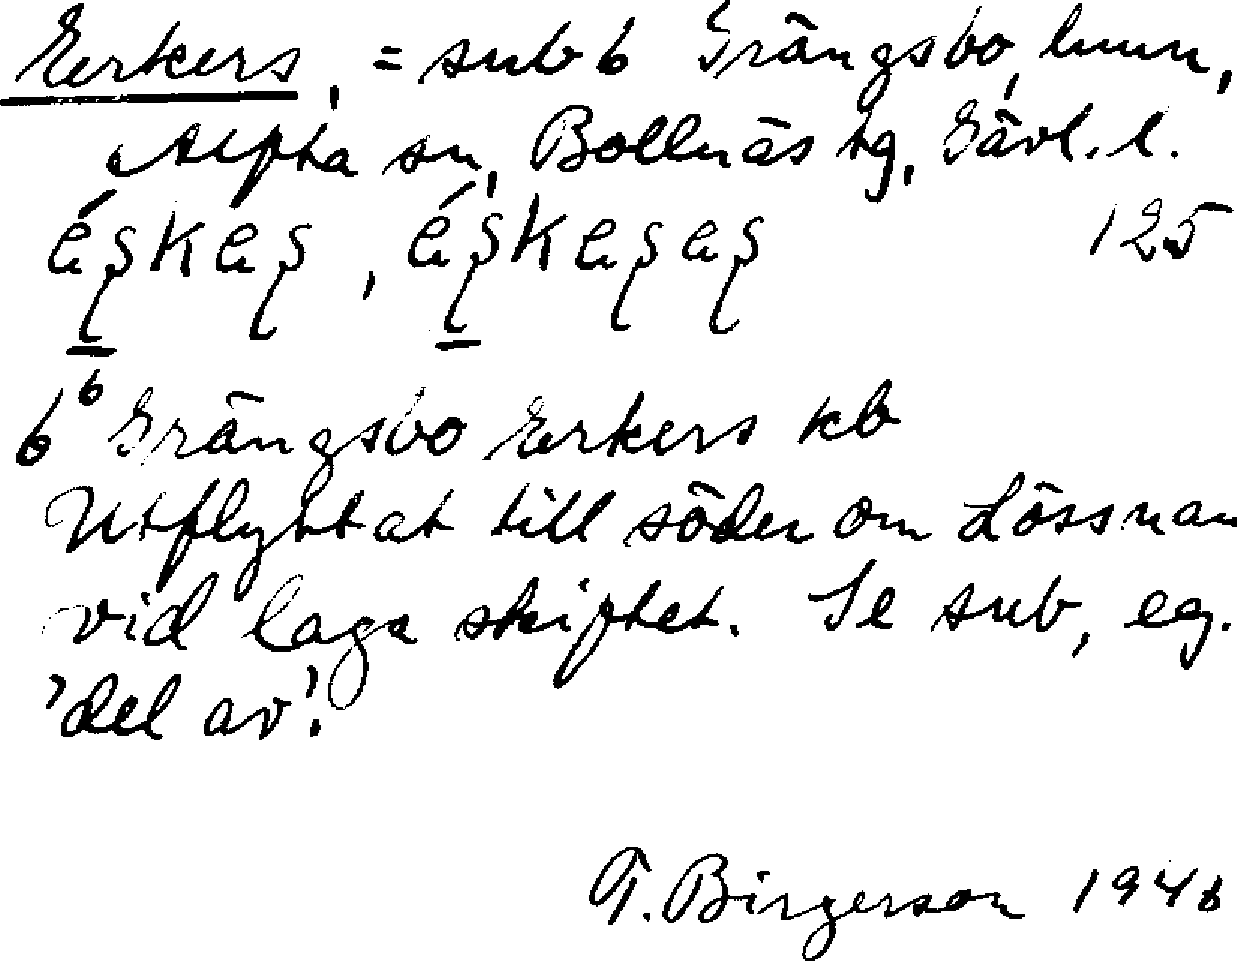 Erkers, = sub 6 Grängsbo, hmn,
Alfta sn, Bollnäs tg, Gävl. l.
125
6⁶ Grängsbo Erkers kb
Utflyttat till söder om Lössnan
vid laga skiftet. Se sub, eg.
'del av'.
T. Birgerson 1946